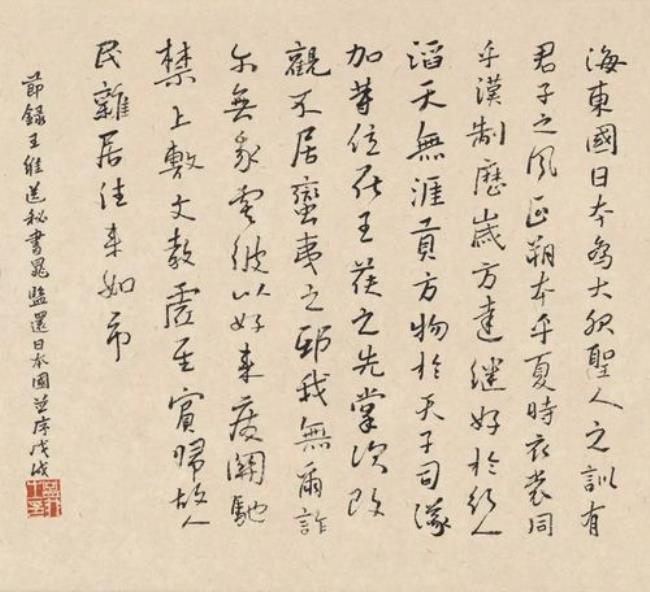 海東國日本為大服聖人之訓有
君子之風正朔本乎夏時衣裳同
乎漢制歷歲方達繼好於行人
滔天無涯貢方物於天子司儀
加等位在王侯之先掌次改
觀不居蠻夷之邸我無爾詐
尔無我虞彼以好來廢關馳
禁上敷文教虛至實歸故人
民雜居往來如市
節錄王維送秘書晁監還日本國並序戊戌